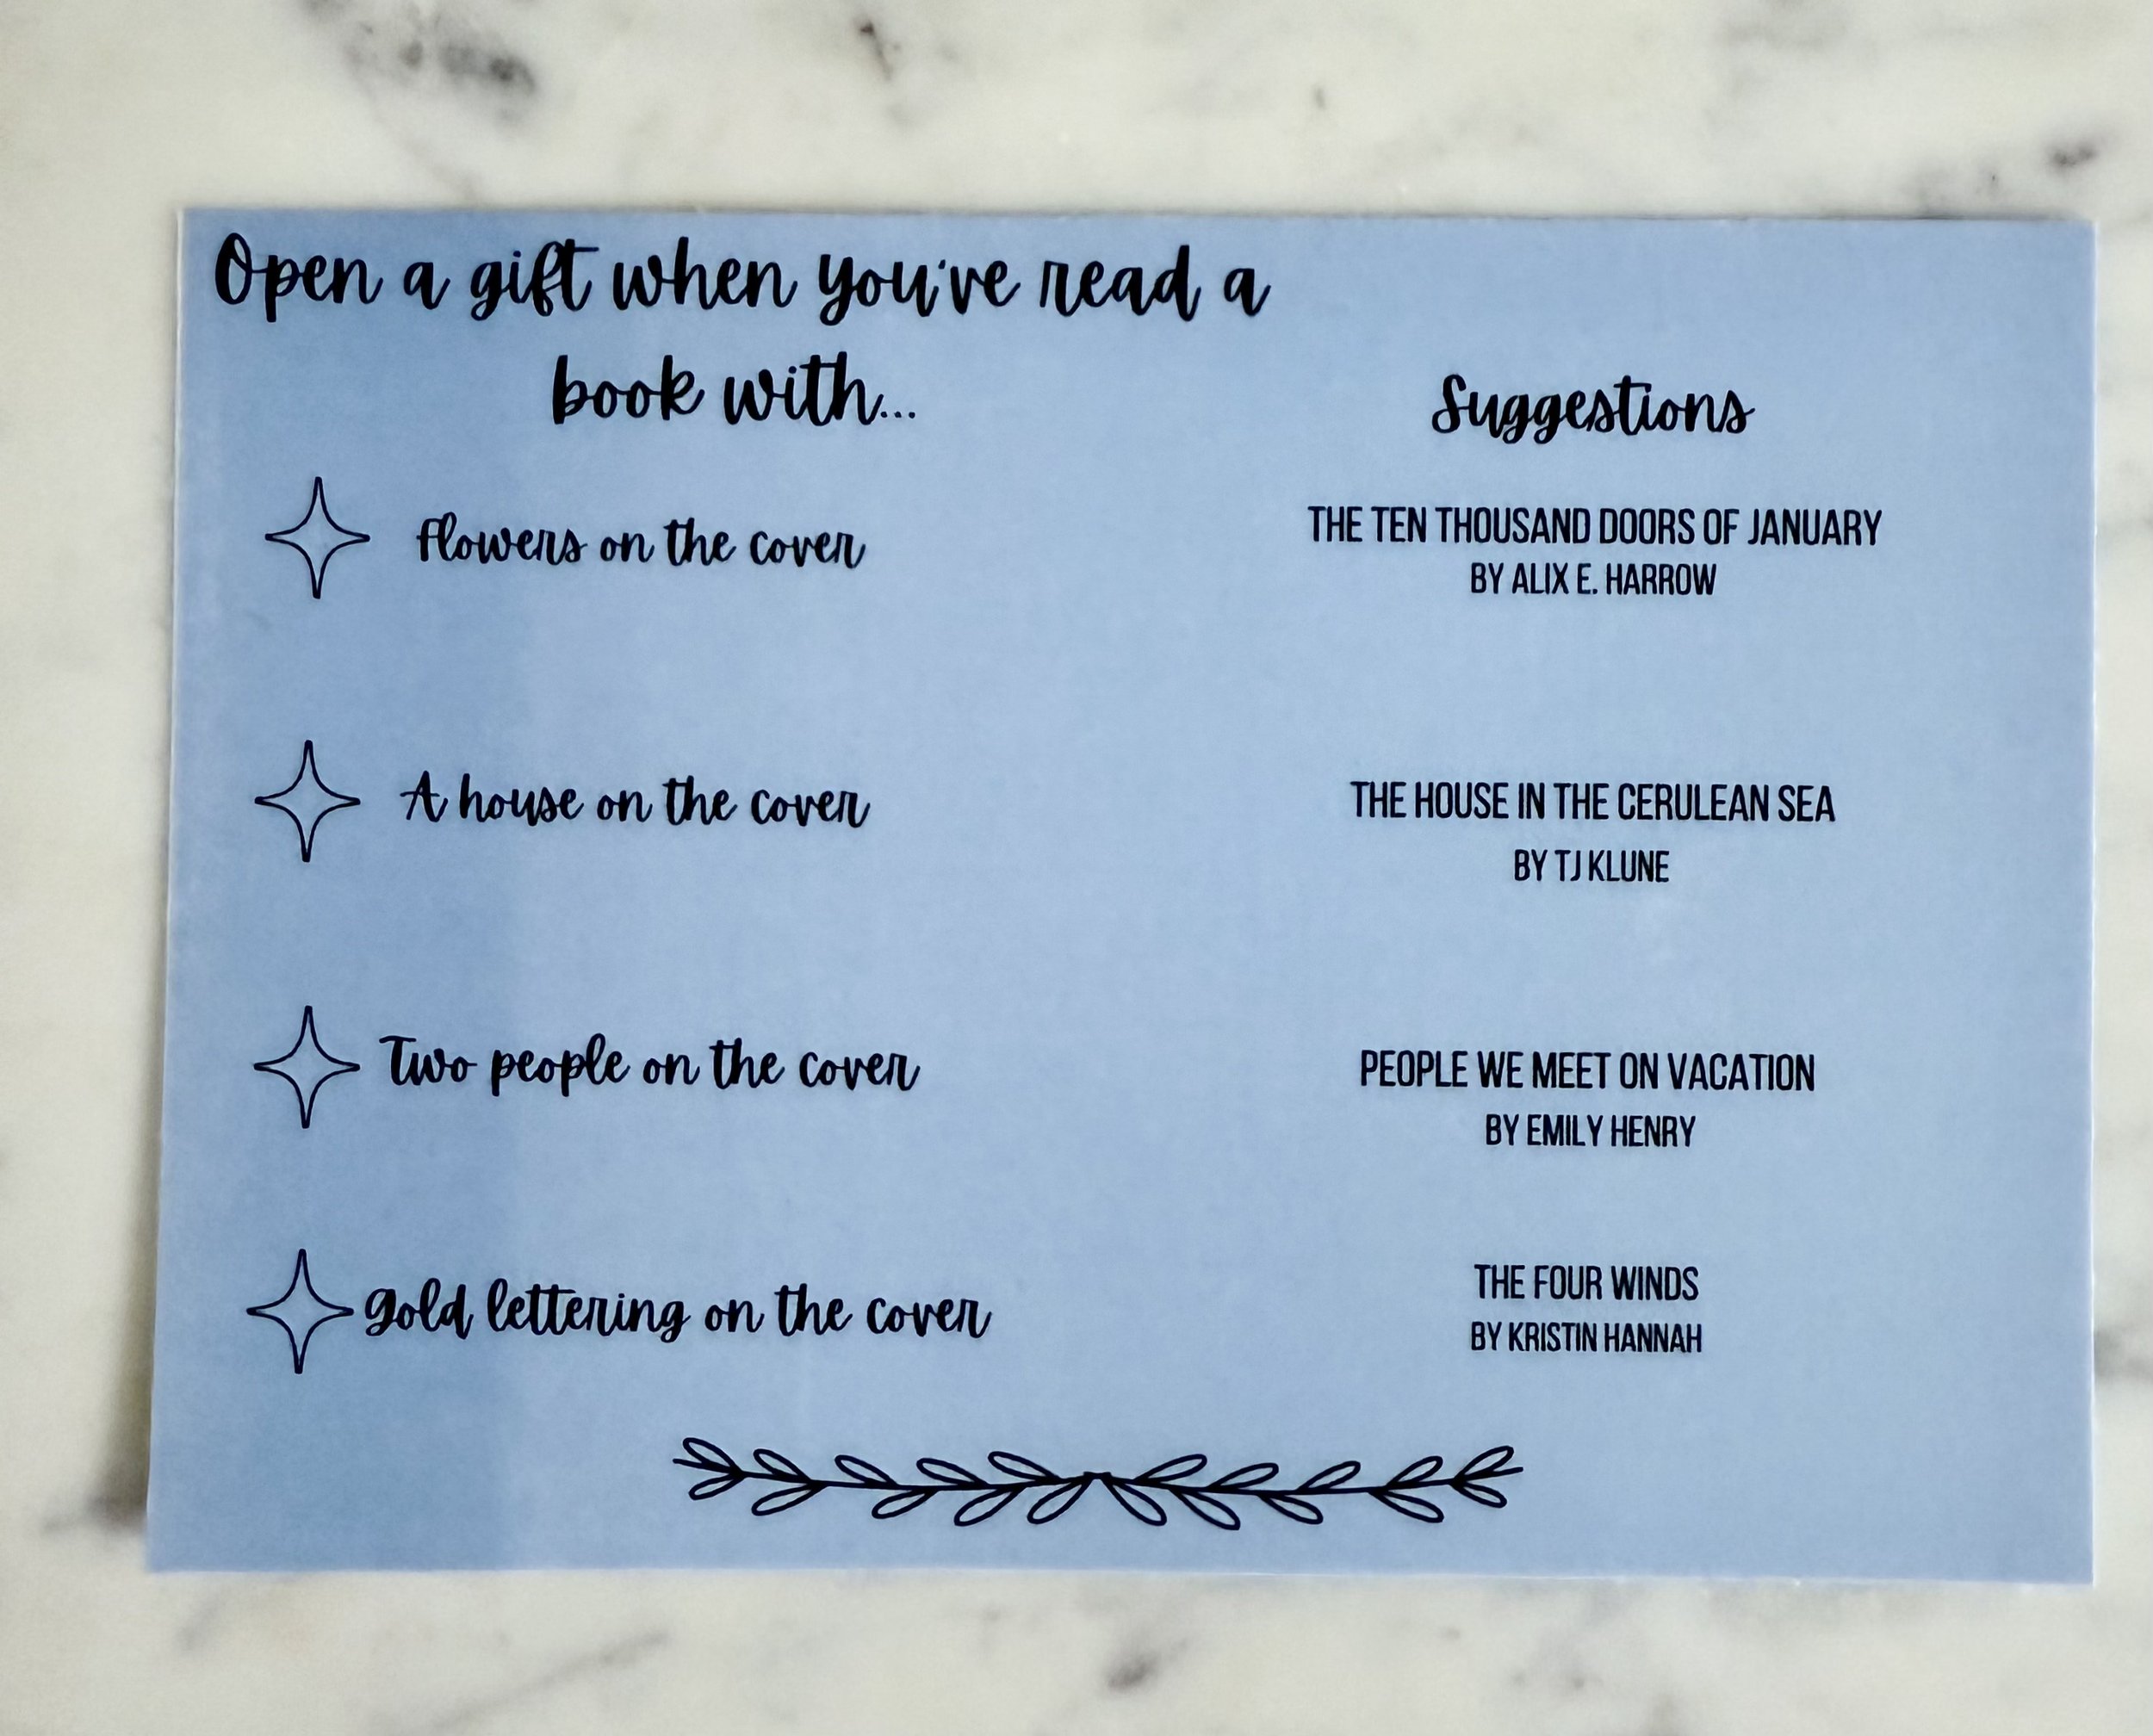 Open a gift when you've read a
book with...
Suggestions
flowers on the cover
THE TEN THOUSAND DOORS OF JANUARY
BY ALIX E. HARROW
A house on the cover
THE HOUSE IN THE CERULEAN SEA
BY TJ KLUNE
Two people on the cover
PEOPLE WE MEET ON VACATION
BY EMILY HENRY
gold lettering on the cover
THE FOUR WINDS
BY KRISTIN HANNAH